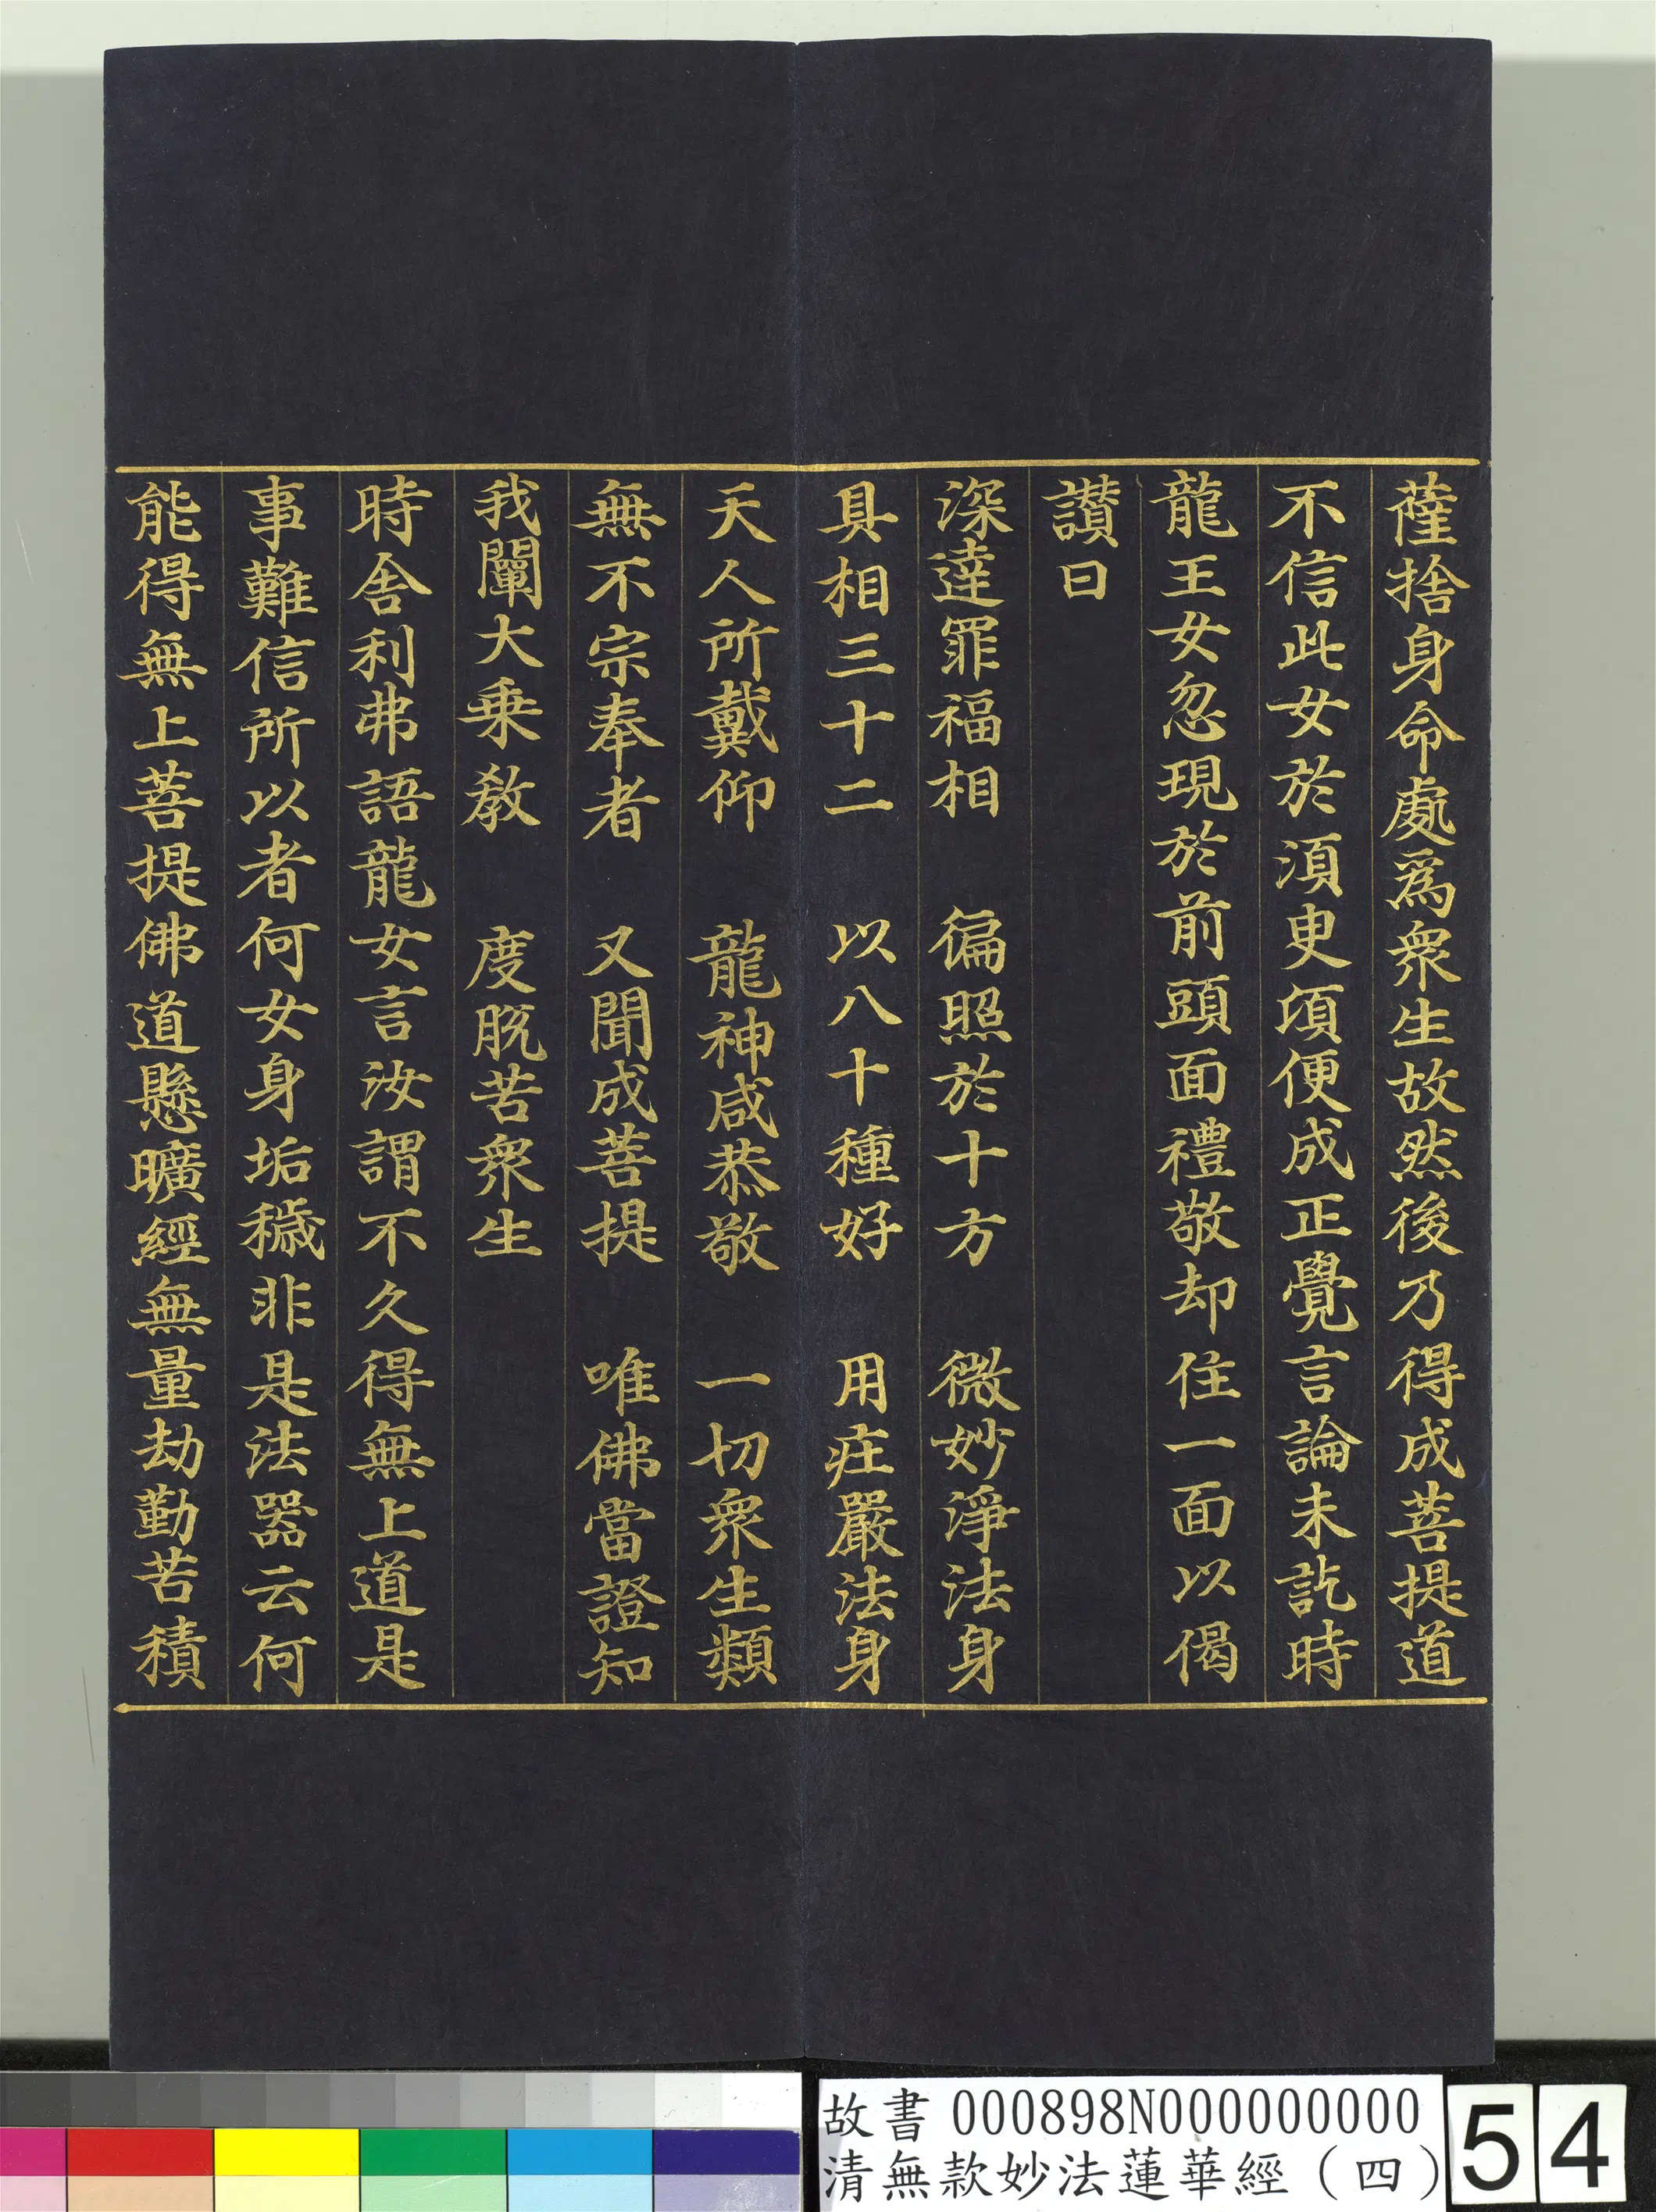 薩捨身命處為衆生故然後乃得成菩提道
不信此女於湏㬰頃便成正覺言論未訖時
龍王女忽現於前頭面禮敬却住一面以偈
讃曰
深逹罪福相　徧照於十方　微妙淨法身
具相三十二　以八十種好　用莊嚴法身
天人所戴仰　龍神咸恭敬　一切衆生類
無不宗奉者　又聞成菩提　唯佛當證知
我闡大乗教　度脱苦衆生
時舍利弗語龍女言汝謂不久得無上道是
事難信所以者何女身垢穢非是法器云何
能得無上菩提佛道懸曠經無量劫勤苦積
故書 000898N000000000
清無款妙法蓮華經（四）
54